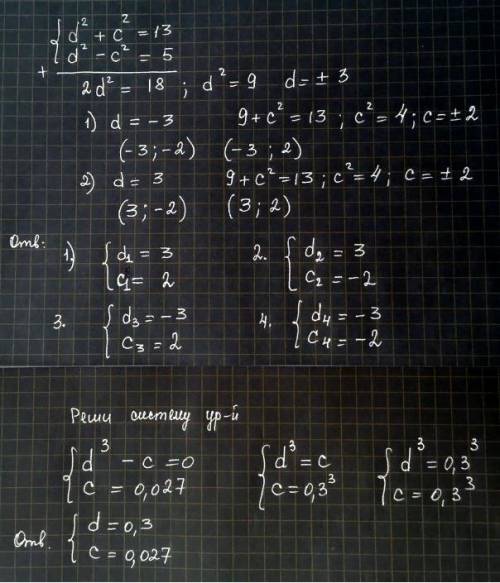 { d² + c² = 13
+ { d² − c² = 5
2d² = 18 ; d² = 9 d = ± 3
1) d = −3 9 + c² = 13 ; c² = 4 ; c = ± 2
(−3 ; −2) (−3 ; 2)
2) d = 3 9 + c² = 13 ; c² = 4 ; c = ± 2
(3 ; −2) (3 ; 2)
Отв: 1. { d₁ = 3 2. { d₂ = 3
{ c₁ = 2 { c₂ = −2
3. { d₃ = −3 4. { d₄ = −3
{ c₃ = 2 { c₄ = −2
Реши систему ур-й
{ d³ − c = 0 { d³ = c { d³ = 0,3³
{ c = 0,027 { c = 0,3³ { c = 0,3³
Отв. { d = 0,3
{ c = 0,027